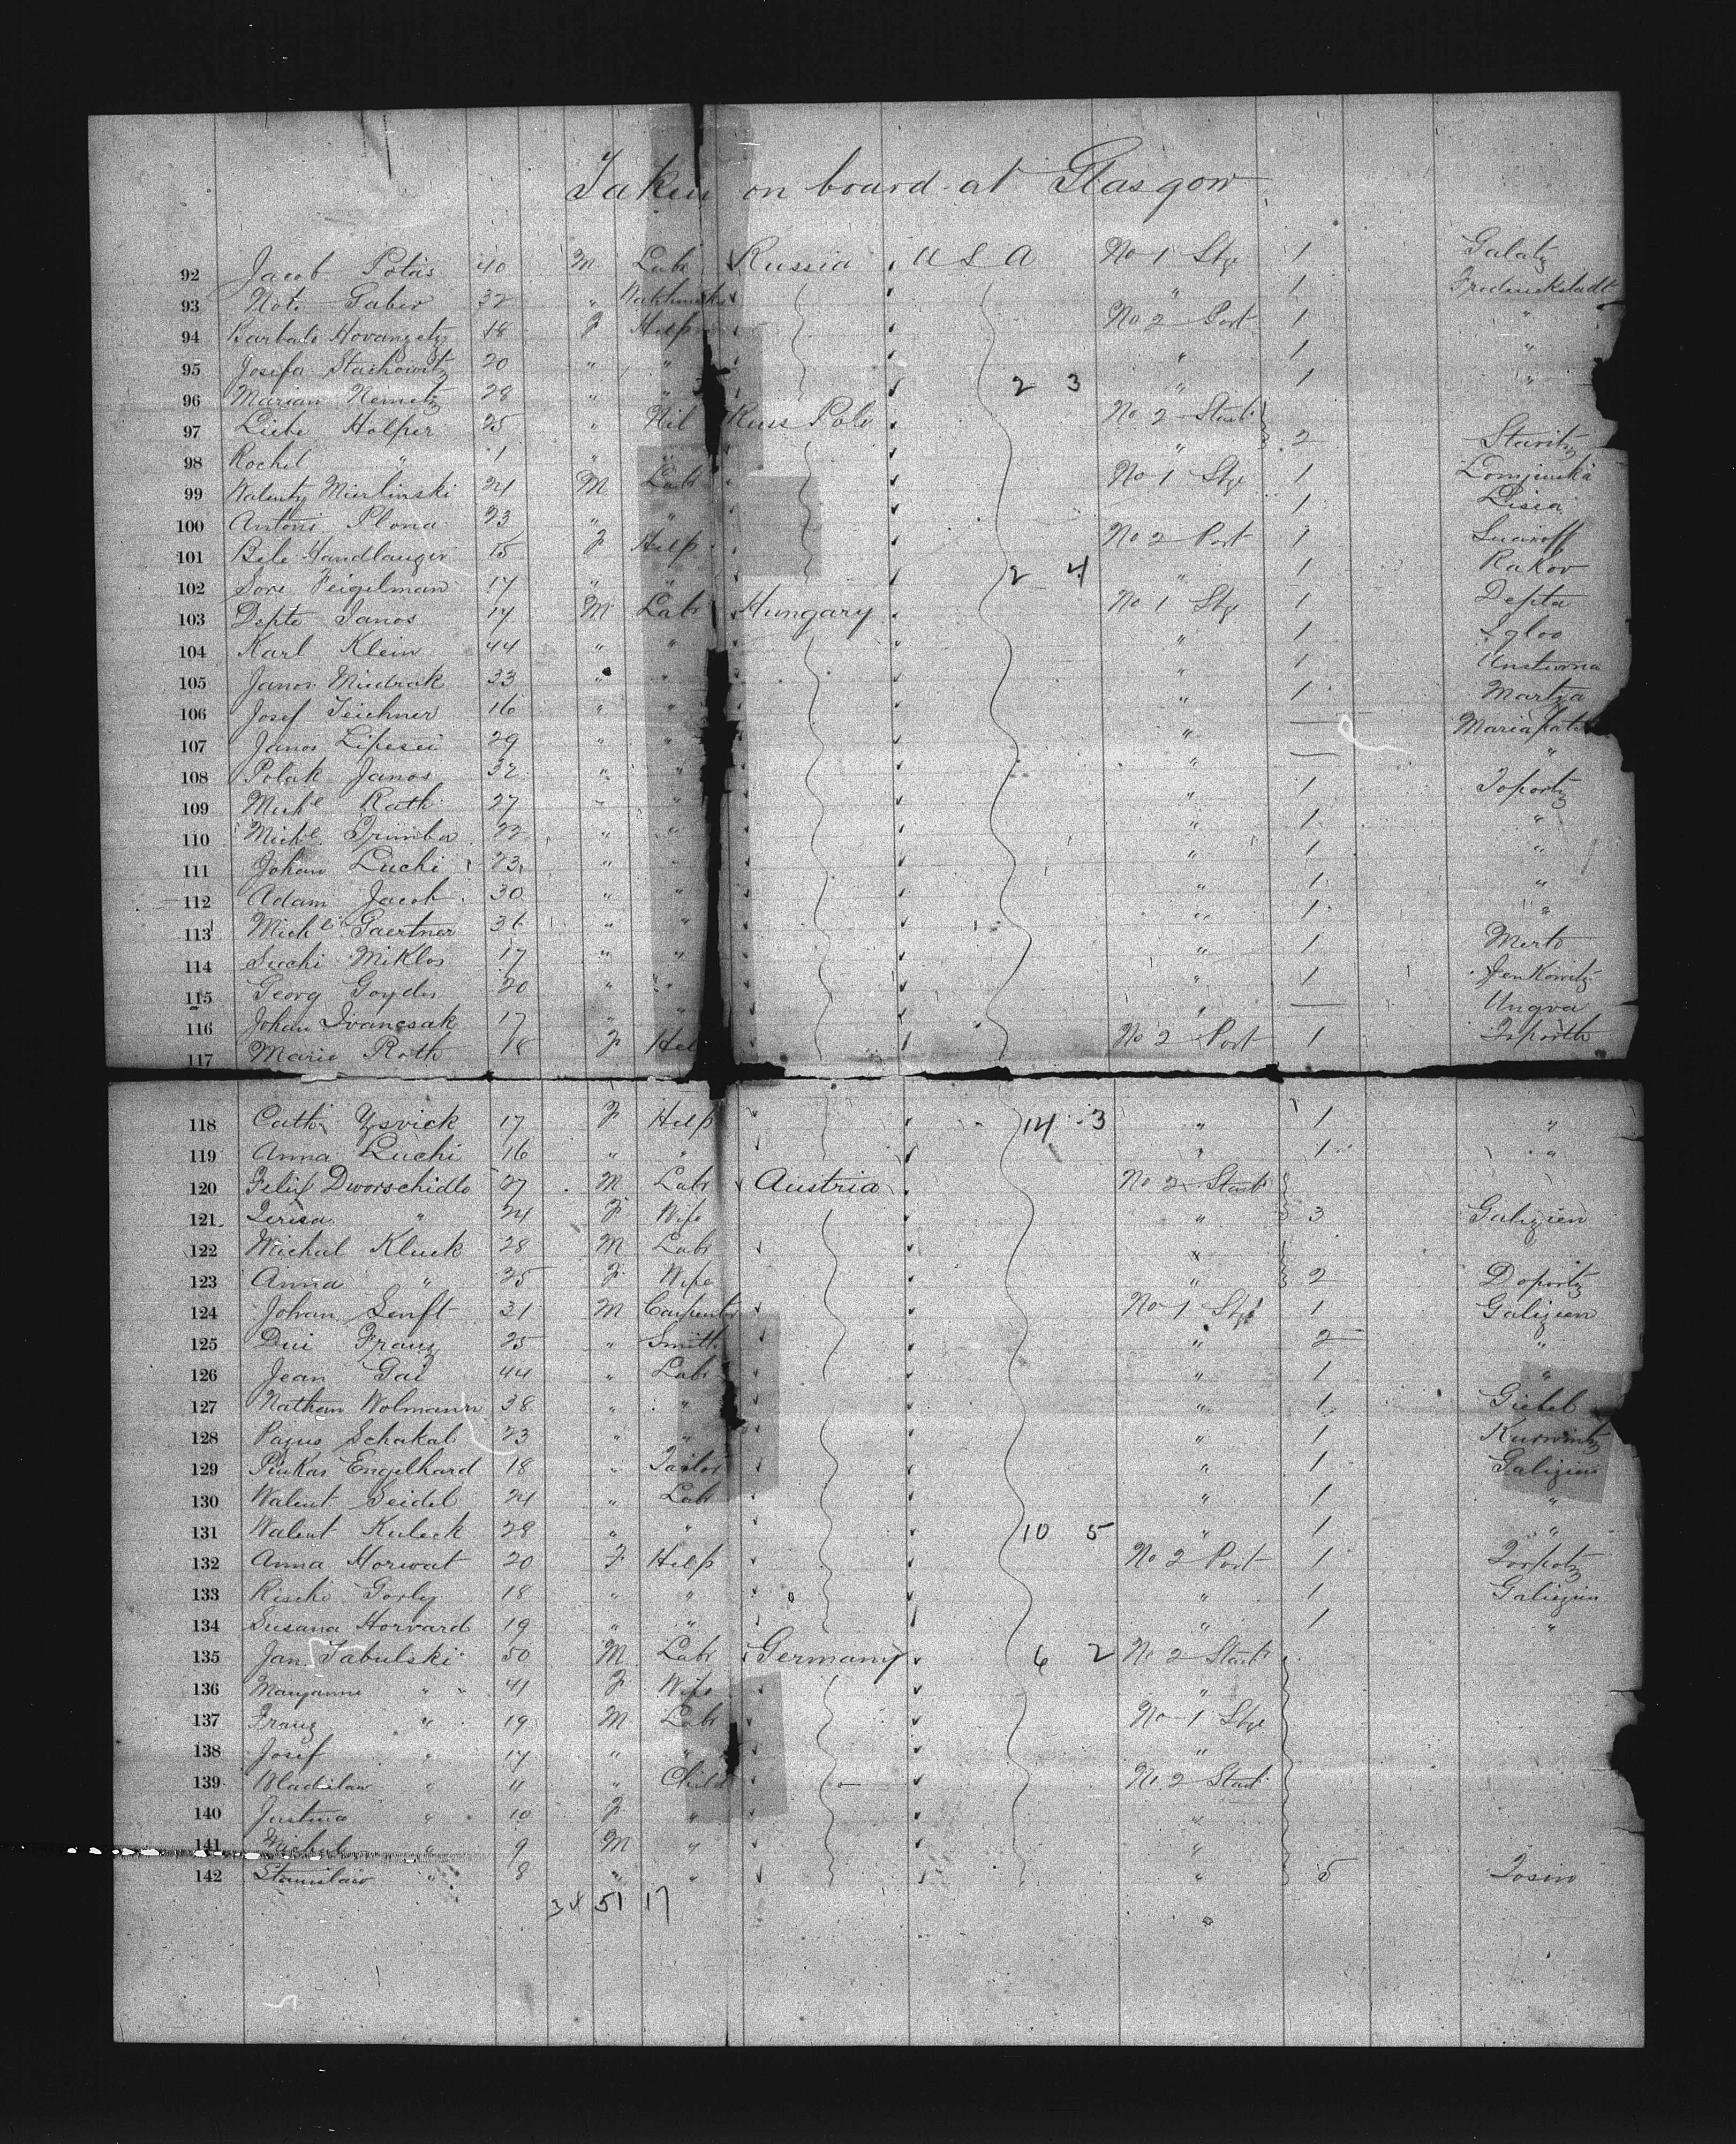 Taken on board at Glasgow
92 Jacob Potas 40 M Labr Russia U S A No 1 Stge 1 Galatz
93 Note Gaber 32 " 1 Frederickstadt
94 Hovanzetz 18 F Help No 2 Port 1 "
95 Josefa Stachowitz 20 " " " 1 "
96 Marian Nemetz 28 " " 2 3 " 1 "
97 Liebe Holper 25 " Nil Russ Pole No 2 Starb
98 Rochel " 1 " " " 2 Staritz
99 Walenty Mierlinski 21 M Labr No 1 Stge 1
100 Antoni Plona 23 " " 1 Lisia
101 Beile Handlauger 15 F Help No 2 Port 1
102 Sore Feigelman 17 " " 2 4 " 1 Rakov
103 Depto Janos 17 M Labr Hungary No 1 Stge 1 Depta
104 Karl Klein 44 " " " 1 Igloo
105 Janos Miedrak 33 " " " 1
106 Josef Teichner 16 " " " 1 Martza
107 Janos Lipesei 29 " " " —
108 Polak Janos 32 " " " — "
109 Michl Rath 27 " " " 1 Toportz
110 Michl Grimba 22 " " " 1 "
111 Johan Luchi 23 " " " 1 "
112 Adam Jacob 30 " " " 1 "
113 Michl Gaertner 36 " " " 1 "
114 Suchi Miklos 17 " " " 1 Merto
115 Georg Goyder 20 " " " 1 Jenkowitz
116 Johan Ivancsak 17 " " " — Ungva
117 Marie Roth 18 F Help No 2 Port 1
118 Cath Zsvick 17 F Help 14 3 " 1 "
119 Anna Luchi 16 " " " 1 "
120 Felix Dworschidlo 27 M Labr Austria No 2 Starb
121 Teresa " 24 F Wife " 3 Galizien
122 Michal Kluck 28 M Labr "
123 Anna " 25 F Wife " 2 Doportz
124 Johan Senft 31 M Carpenter No 1 Stge 1 Galizien
125 Dui Franz 25 " Smith " 2 "
126 Jean Gai 44 " Labr " 1 "
127 Nathan Wolmann 38 " " " 1 Giebel
128 Pajus Schakal 23 " " " 1
129 Pinkas Engelhard 18 " Tailor " 1 Galizien
130 Walent Seidel 24 " Labr " 1 "
131 Walent Kuleck 28 " " 10 5 " 1 "
132 Anna Horwat 20 F Help No 2 Port 1 Torpotz
133 Rische Gorly 18 " " " 1 Galizien
134 Susana Horvard 19 " " " 1 "
135 Jan Tabulski 50 M Labr Germany 6 2 No 2 Starb
136 Maryanne " 41 F Wife "
137 Franz " 19 M Labr No 1 Stge
138 Josef " 17 " " "
139 Wladislaw " 11 " Child No 2 Starb
140 Justina " 10 F " "
141 Michal " 9 M " "
142 Stanislaw " 8 " " " 5 Tosin
34 51 17